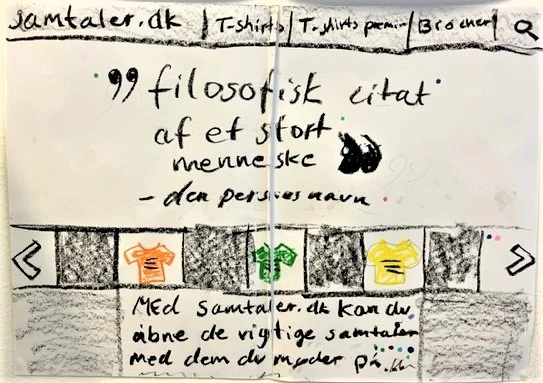 samtaler.dk T-shirts T-shirts premium Brocher
filosofisk citat
af et stort
menneske
- den persons navn
Med samtaler.dk kan du
åbne de vigtige samtaler
med dem du møder på